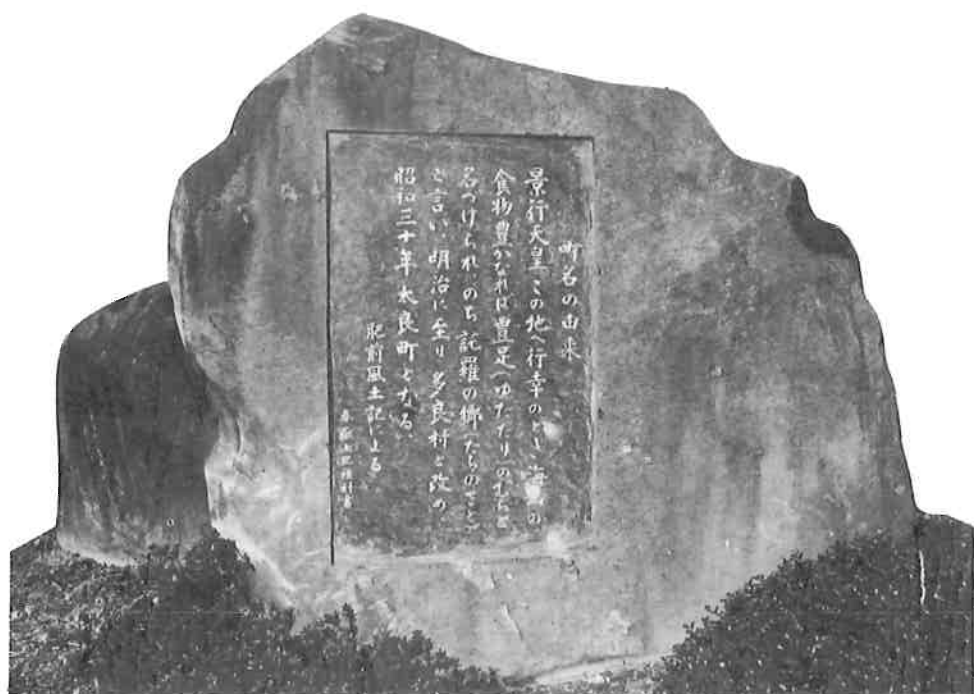 町名の由来
景行天皇この地へ行幸のとき、海の
食物豊かなれば豊足(ゆたたり)のむらと
名づけられ、のち託羅の郷(たらのさと)
と言い、明治に至り多良村と改め、
昭和三十年太良町となる。
肥前風土記による